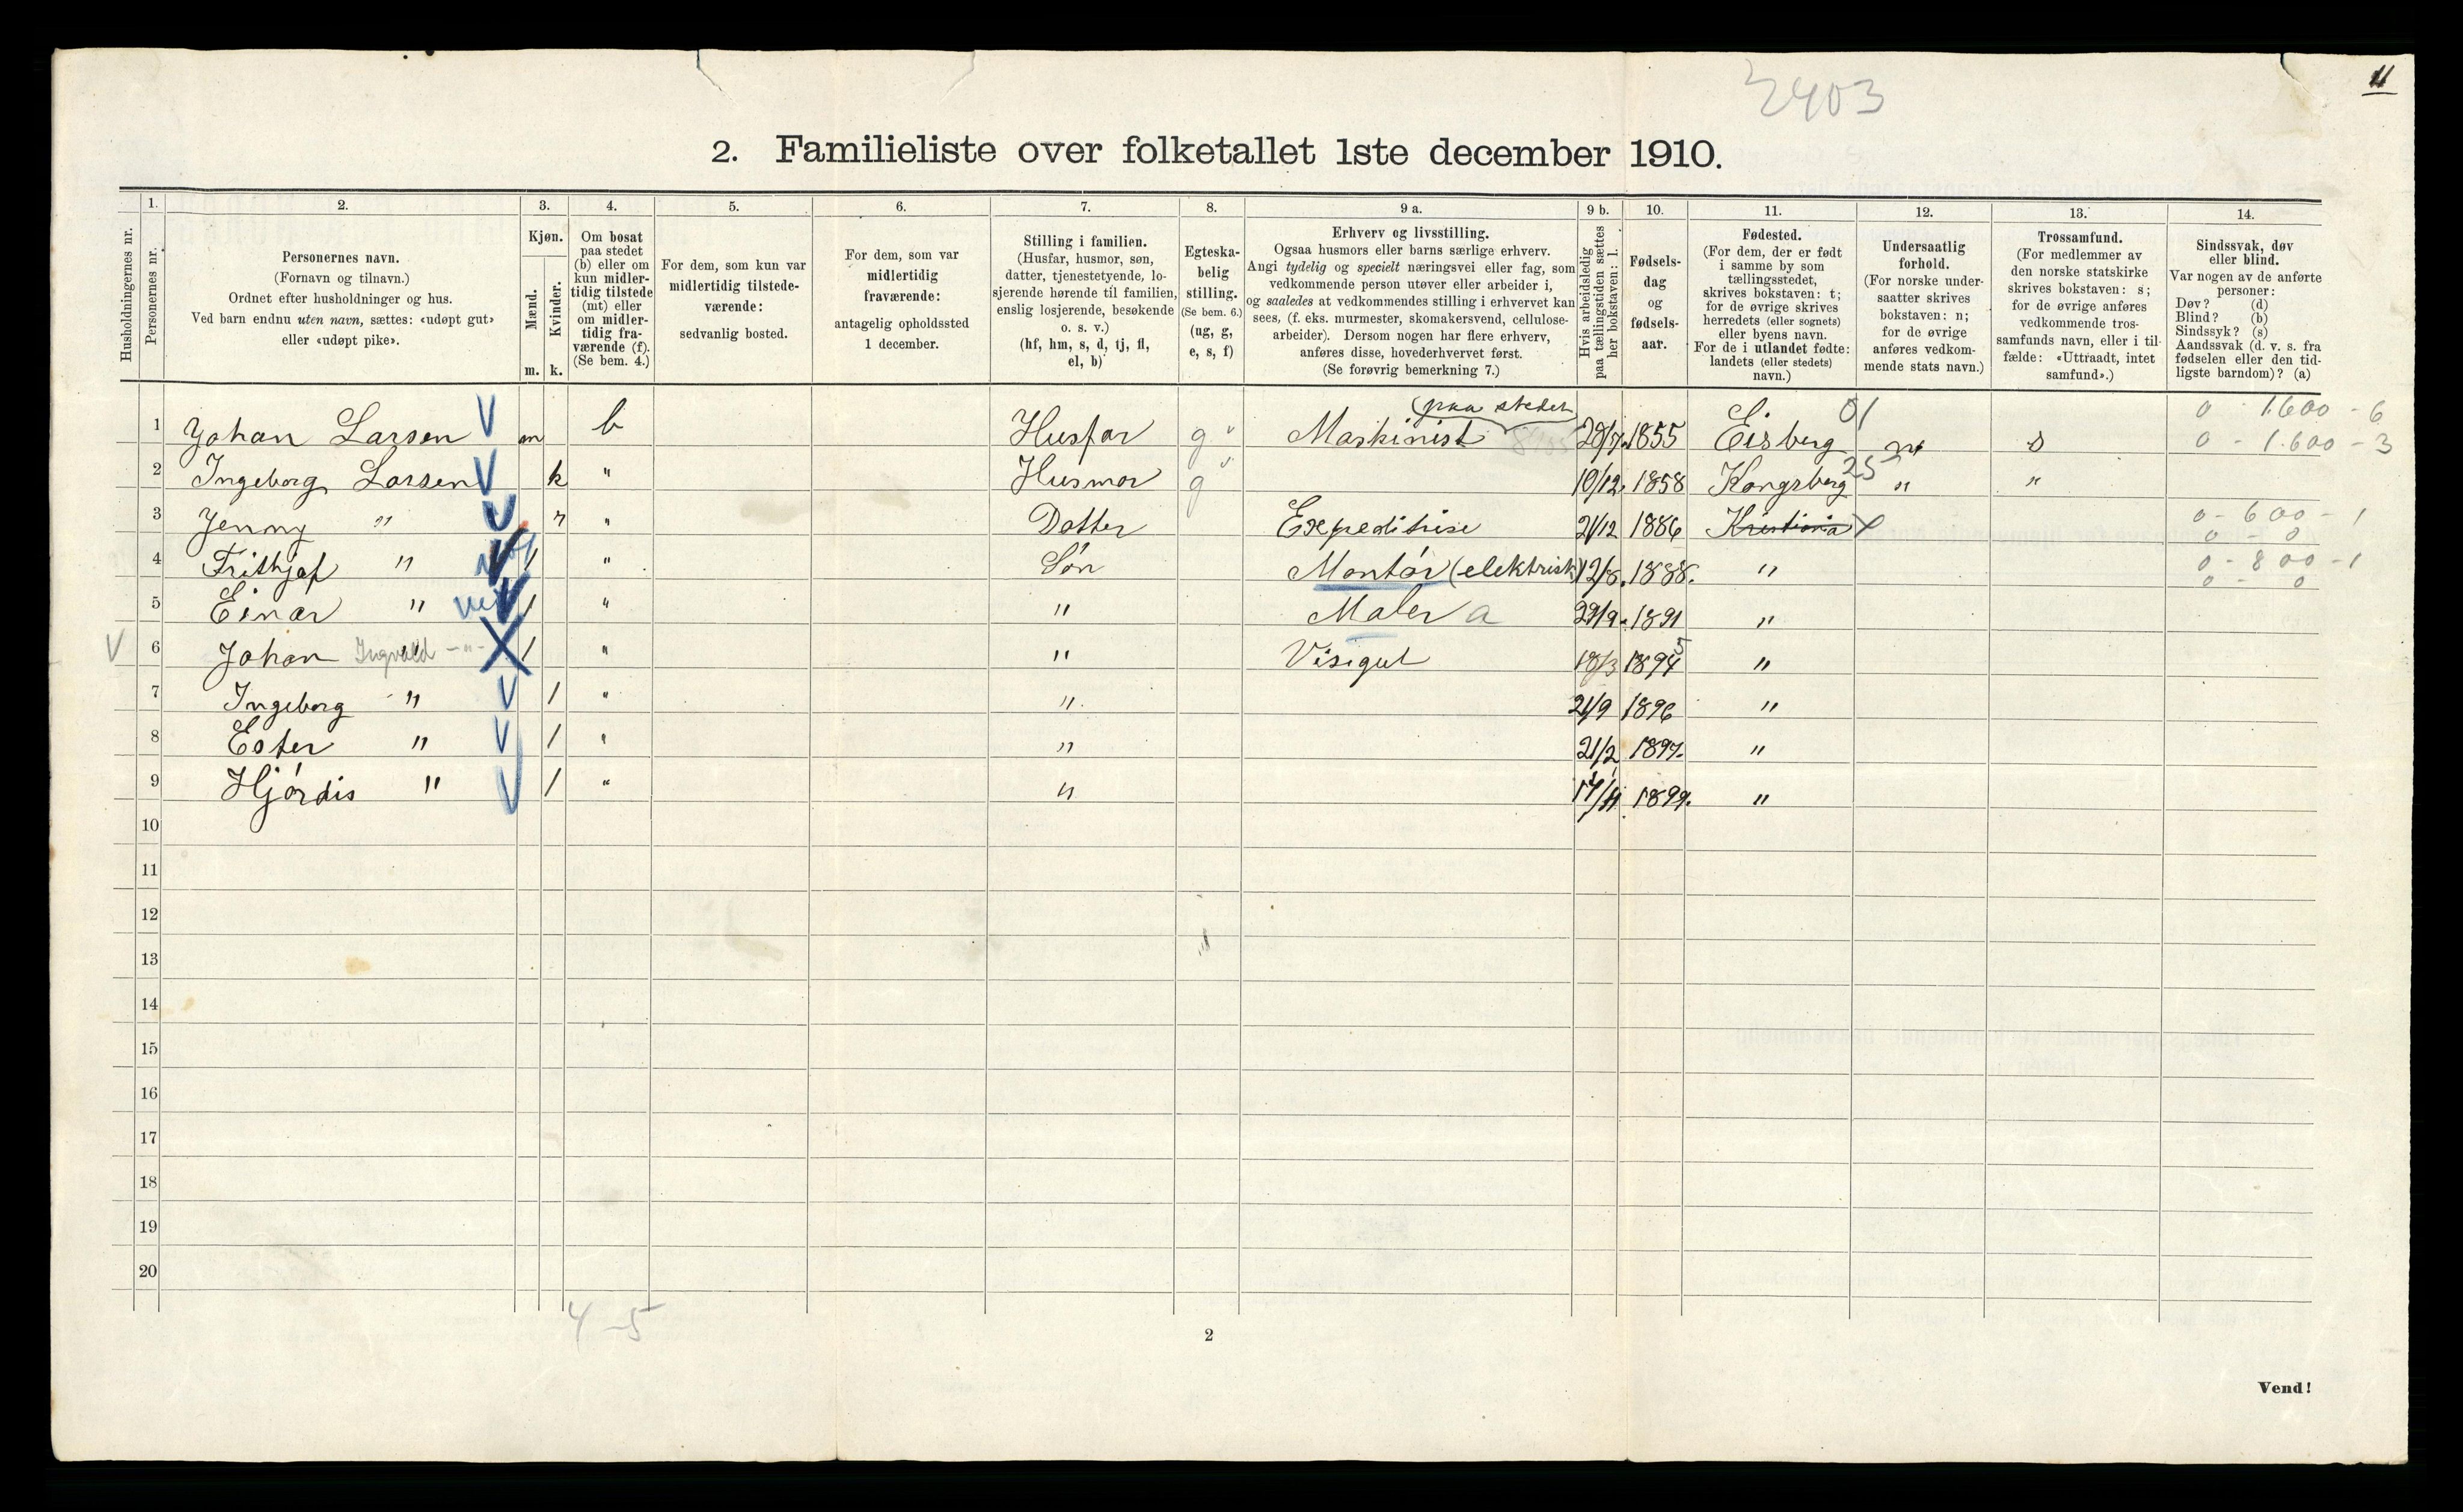 2403
11
2. Familieliste over folketallet 1ste december 1910.
Husholdningernes nr.
1.
Personernes nr.
2.
Personernes navn.
(Fornavn og tilnavn.)
Ordnet efter husholdninger og hus.
Ved barn endnu uten navn, sættes: «udøpt gut»
eller «udøpt pike».
3.
Kjøn.
Mænd.
Kvinder.
m. k.
4.
Om bosat
paa stedet
(b) eller om
kun midler-
tidig tilstede
(mt) eller
om midler-
tidig fra-
værende (f).
(Se bem. 4.)
5.
For dem, som kun var
midlertidig tilstede-
værende:
sedvanlig bosted.
6.
For dem, som var
midlertidig
fraværende:
antagelig opholdssted
1 december.
7.
Stilling i familien.
(Husfar, husmor, søn,
datter, tjenestetyende, lo-
sjerende hørende til familien,
enslig losjerende, besøkende
o. s. v.)
(hf, hm, s, d, tj, fl,
el, b)
8.
Egteska-
belig
stilling.
(Se bem. 6.)
(ug, g,
e, s, f)
9 a.
Erhverv og livsstilling.
Ogsaa husmors eller barns særlige erhverv.
Angi tydelig og specielt næringsvei eller fag, som
vedkommende person utøver eller arbeider i,
og saaledes at vedkommendes stilling i erhvervet kan
sees, (f. eks. murmester, skomakersvend, cellulose-
arbeider). Dersom nogen har flere erhverv,
anføres disse, hovederhvervet først.
(Se forøvrig bemerkning 7.)
9 b.
Hvis arbeidsledig
paa tællingstiden sættes
her bokstaven: l.
10.
Fødsels-
dag
og
fødsels-
aar.
11.
Fødested.
(For dem, der er født
i samme by som
tællingsstedet,
skrives bokstaven: t;
for de øvrige skrives
herredets (eller sognets)
eller byens navn.
For de i utlandet fødte:
landets (eller stedets)
navn.)
12.
Undersaatlig
forhold.
(For norske under-
saatter skrives
bokstaven: n;
for de øvrige
anføres vedkom-
mende stats navn.)
13.
Trossamfund.
(For medlemmer av
den norske statskirke
skrives bokstaven: s;
for de øvrige anføres
vedkommende tros-
samfunds navn, eller i til-
fælde: «Uttraadt, intet
samfund».)
14.
Sindssvak, døv
eller blind.
Var nogen av de anførte
personer:
Døv? (d)
Blind? (b)
Sindssyk? (s)
Aandssvak (d. v. s. fra
fødselen eller den tid-
ligste barndom)? (a)
paa stedet 01 0 - 1.600 - 6
1 Johan Larsen V m b Husfar g " Maskinist 20/7 1855 Eisberg n s 0 - 1.600 - 3
2 Ingeborg Larsen V k " Husmor g " 10/12 1858 Kongsberg 25 " "
3 Jenny " V " Datter Expeditrise 21/12 1886 Kristiania X 0 - 600 - 1
0 - 0
4 Frithjof " V 1 " Søn Montør (elektrisk) 12/8. 1888. " 0 - 800 - 1
0 - 0
5 Einar " V 1 " " Maler a 29/9. 1891 "
V 6 Johan Ingvald -"- X 1 " " Visigut 18/3 1894 5 "
7 Ingeborg " V 1 " " 21/9 1896 "
8 Ester " V 1 " " 21/2 1897. "
9 Hjørdis " V 1 " " 14/11 1899. "
10
11
12
13
14
15
16
17
18
19
20
4 - 5
2
Vend!